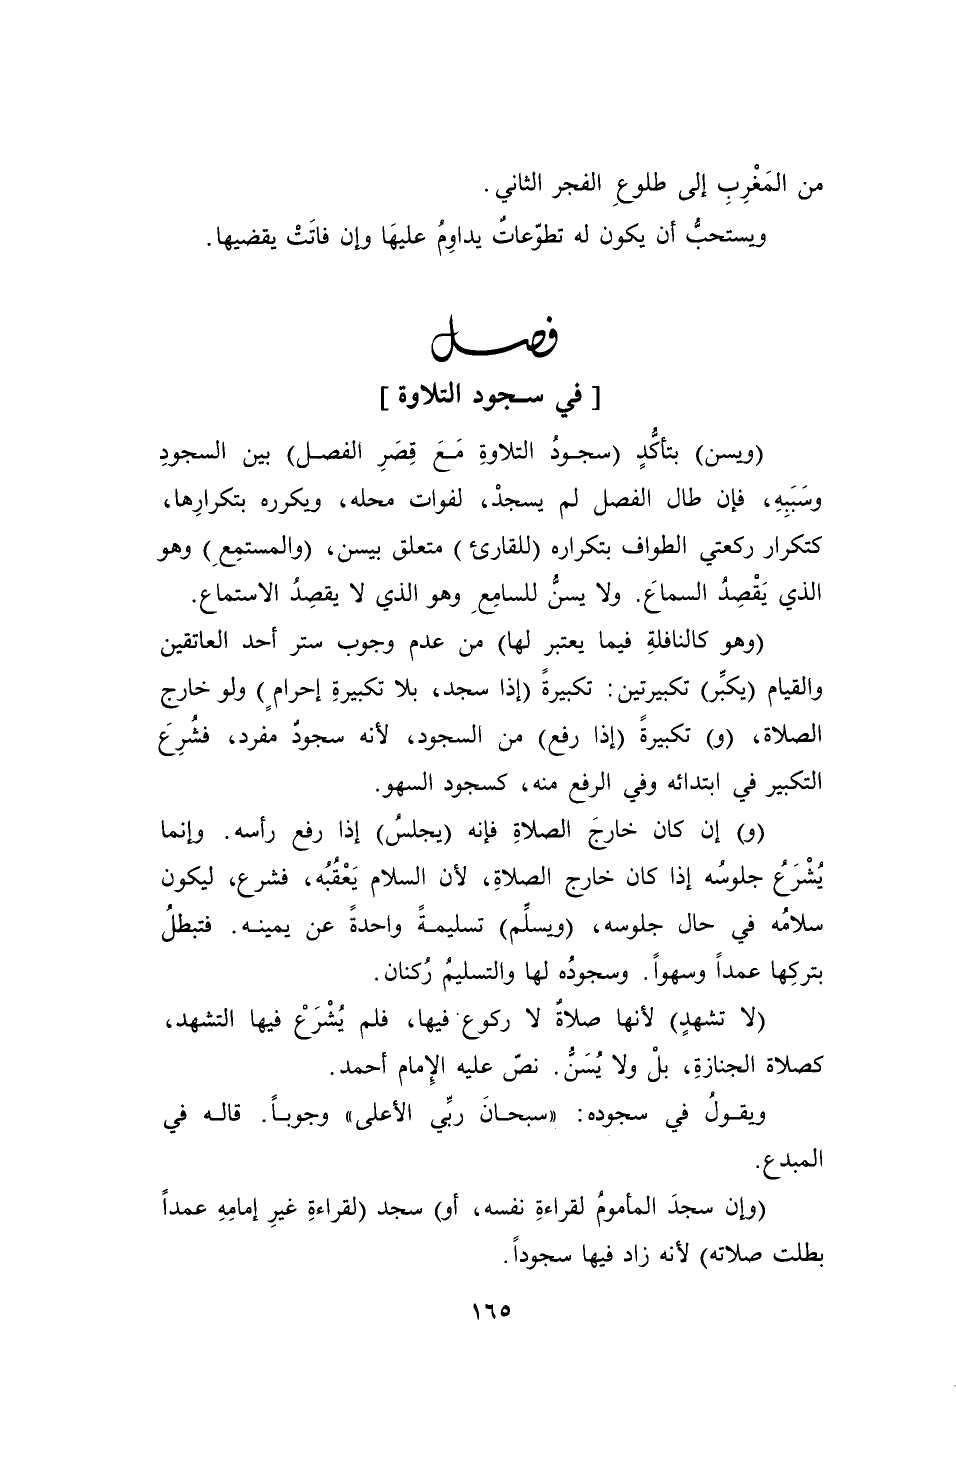 من المَغْرِبِ إلى طلوعِ الفجر الثاني .
ويستحبُّ أن يكون له تطوّعاتٌ يداوِمُ عليهَا وإن فاتَتْ يقضيها .
فصل
[ في سجود التلاوة ]
(ويسن) بتأكُّدٍ (سجودُ التلاوةِ مَعَ قِصَرِ الفصل) بين السجودِ
وسَبَبِهِ، فإن طال الفصل لم يسجدْ، لفوات محله، ويكرره بتكرارِها،
كتكرار ركعتي الطواف بتكراره (للقارئ) متعلق بيسن، (والمستمِعِ) وهو
الذي يَقْصِدُ السماعَ. ولا يسنُّ للسامِعِ وهو الذي لا يقصِدُ الاستماع.
(وهو كالنافلةِ فيما يعتبر لها) من عدم وجوب ستر أحد العاتقين
والقيام (يكبِّر) تكبيرتين: تكبيرةً (إذا سجد، بلا تكبيرةِ إحرامٍ) ولو خارج
الصلاة، (و) تكبيرةً (إذا رفع) من السجود، لأنه سجودٌ مفرد، فشُرِعَ
التكبير في ابتدائه وفي الرفع منه، كسجود السهو.
(و) إن كان خارجَ الصلاةِ فإنه (يجلسُ) إذا رفع رأسه. وإنما
يُشْرَعُ جلوسُه إذا كان خارج الصلاةِ، لأن السلام يَعْقُبُه، فشرع، ليكون
سلامُه في حال جلوسه، (ويسلِّم) تسليمةً واحدةً عن يمينه. فتبطلُ
بتركِها عمداً وسهواً. وسجودُه لها والتسليمُ رُكنان.
(لا تشهدٍ) لأنها صلاةٌ لا ركوع فيها، فلم يُشْرَعْ فيها التشهد،
كصلاة الجنازةِ، بلْ ولا يُسَنُّ. نصّ عليه الإمام أحمد.
ويقولُ في سجوده: «سبحانَ ربِّي الأعلى» وجوباً. قاله في
المبدع.
(وإن سجدَ المأمومُ لقراءةِ نفسه، أو) سجد (لقراءةِ غيرِ إمامِهِ عمداً
بطلت صلاته) لأنه زاد فيها سجوداً.
١٦٥